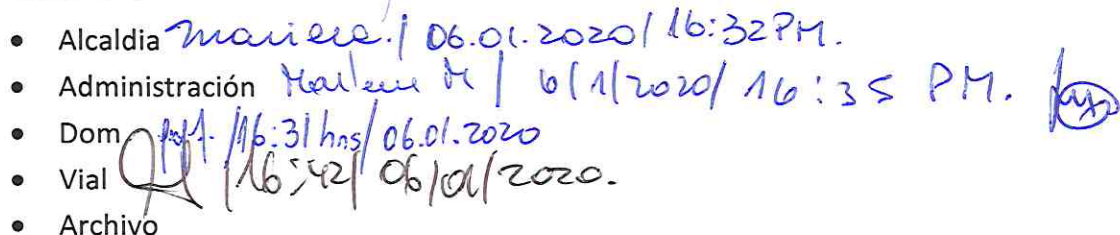 • Alcaldia Mariela. / 06.01.2020 / 16:32 PM.
• Administración Marlene M / 6/1/2020 / 16:35 PM.
• Dom /16:31 hrs/ 06.01.2020
• Vial /16:42/ 06/01/2020.
• Archivo